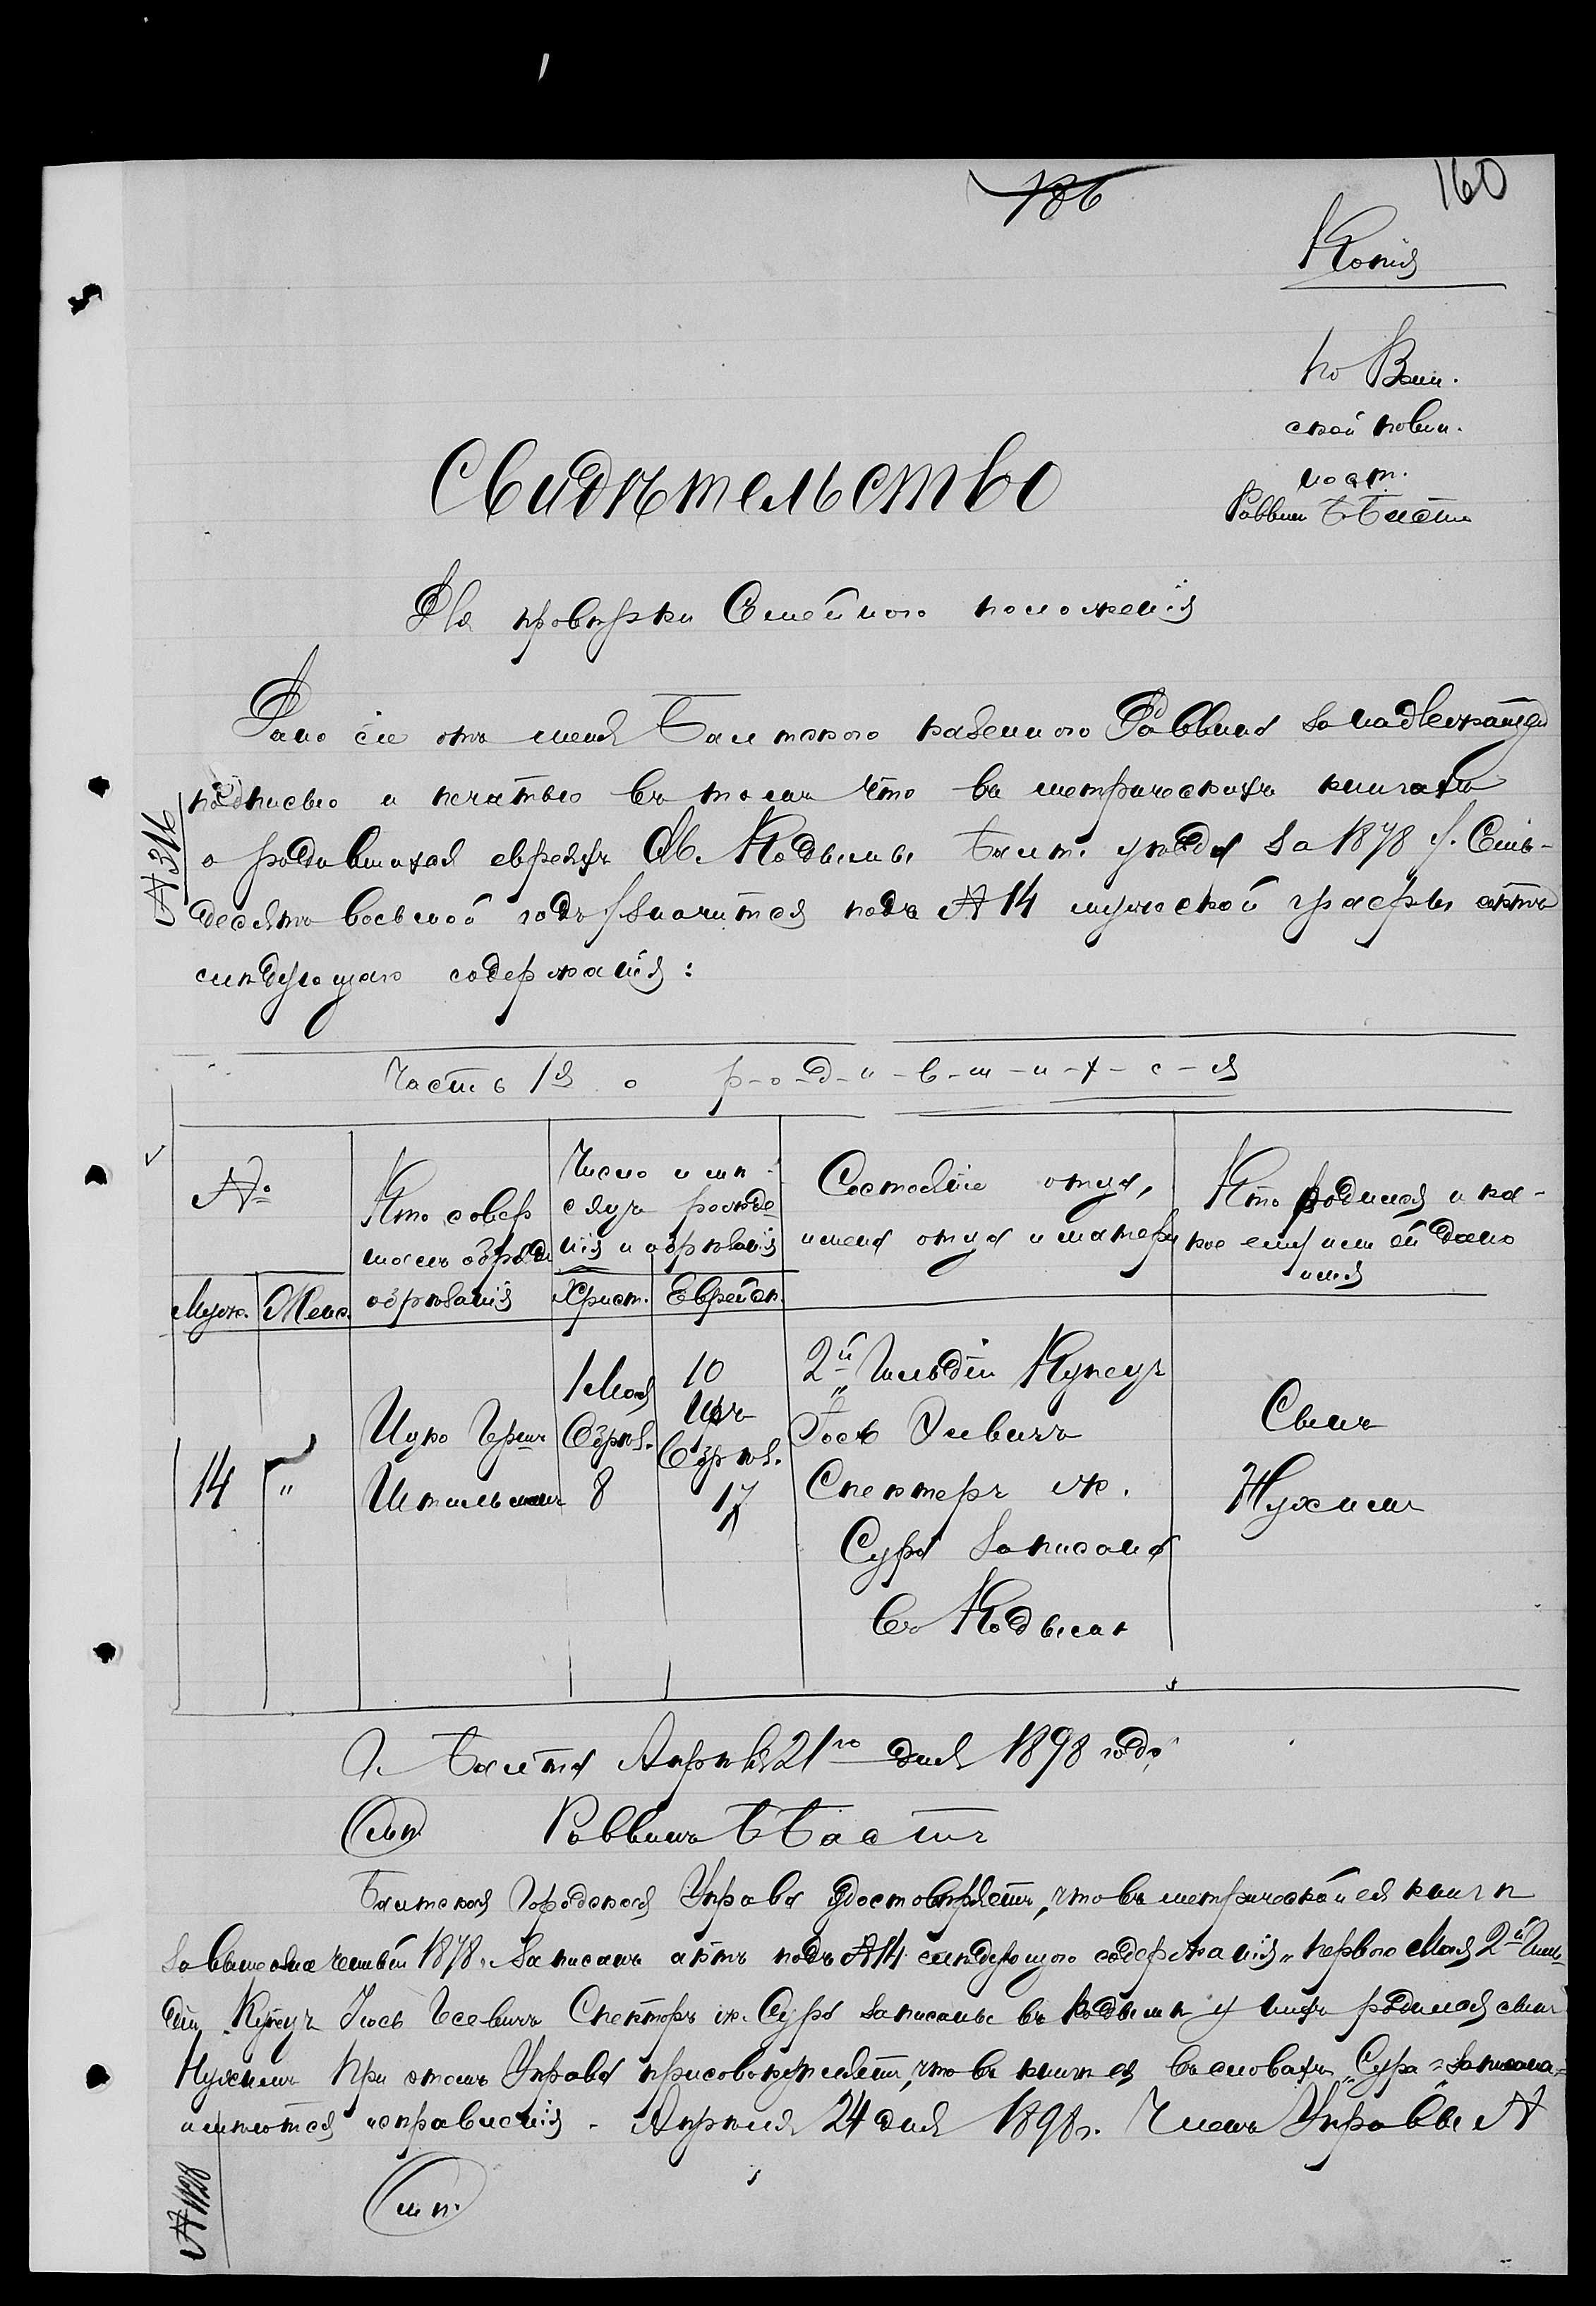 186
160
Копія
по Воин.
ской повин.
ност.
Раввин Б Бастъ
Свидѣтельство
Для провѣрки Семейного положенія
Дано сіе отъ меня Балтского казенного Раввина за надлежащей
подписью и печатью въ томъ что въ метрическихъ книгахъ
о родившихся евреяхъ М. Кодымы Балт. уѣзда за 1878 г. Семь-
десятъ восьмой годъ/ значится подъ № 14 мужеской графы актъ
слѣдующаго содержанія:
№ 316
Часть 1я о р-о-д-и-в-ш-и-х-с-я
№
Муж.
Женс.
Кто совер
шалъ обрядъ
обрѣзанія
Число и мѣ-
сяцъ рожде
нія и обрѣзанія
Христ.
Еврейск.
Состояніе отца,
имена отца и матери
Кто родился и ка-
кое ему или ей дано
имя
14
"
Ицко Герш
1 Мая
Обрѣз.
8
10
Іяръ
Обрѣз.
17
2й Гильдіи Купецъ
Спекторъ ж.
Сура Записанъ
въ Кодымѣ
Сынъ
Нухимъ
Г. Балта Апрѣля 21го дня 1898 года
м.п. Раввинъ Б Бастъ
Балтская Городская Управа удостовѣряетъ, что въ метрической ея книгѣ
за вышеозначенный 1878 г. Записанъ актъ подъ № 14 слѣдующаго содержанія „перваго Мая 2й Гиль-
діи Купецъ Іось Спекторъ ж. Сура записаны въ Кодымѣ у нихъ родился сынъ
Нухимъ При этомъ Управа присовокупляетъ, что въ книгѣ ея въ словахъ „Сура = Записана =
имѣются исправленія. Апрѣля 24 дня 1898 г. Членъ Управы
№ 1128
м.п.